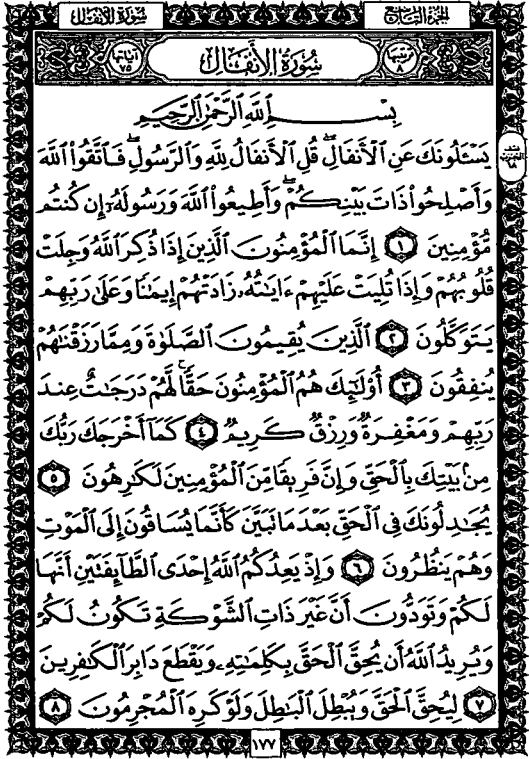 سُورَةُ الأَنفَالِ
الجُزْءُ التَّاسِعُ
آيَاتُهَا ٧٥
سُورَةُ الأَنفَالِ
تَرْتِيبُهَا ٨
بِسْمِ ٱللَّهِ ٱلرَّحْمَٰنِ ٱلرَّحِيمِ
يَسْـَٔلُونَكَ عَنِ ٱلْأَنفَالِۖ قُلِ ٱلْأَنفَالُ لِلَّهِ وَٱلرَّسُولِۖ فَٱتَّقُوا۟ ٱللَّهَ
وَأَصْلِحُوا۟ ذَاتَ بَيْنِكُمْۖ وَأَطِيعُوا۟ ٱللَّهَ وَرَسُولَهُۥٓ إِن كُنتُم
مُّؤْمِنِينَ ١ إِنَّمَا ٱلْمُؤْمِنُونَ ٱلَّذِينَ إِذَا ذُكِرَ ٱللَّهُ وَجِلَتْ
قُلُوبُهُمْ وَإِذَا تُلِيَتْ عَلَيْهِمْ ءَايَٰتُهُۥ زَادَتْهُمْ إِيمَٰنًا وَعَلَىٰ رَبِّهِمْ
يَتَوَكَّلُونَ ٢ ٱلَّذِينَ يُقِيمُونَ ٱلصَّلَوٰةَ وَمِمَّا رَزَقْنَٰهُمْ
يُنفِقُونَ ٣ أُو۟لَٰٓئِكَ هُمُ ٱلْمُؤْمِنُونَ حَقًّاۚ لَّهُمْ دَرَجَٰتٌ عِندَ
رَبِّهِمْ وَمَغْفِرَةٌ وَرِزْقٌ كَرِيمٌ ٤ كَمَآ أَخْرَجَكَ رَبُّكَ
مِنۢ بَيْتِكَ بِٱلْحَقِّ وَإِنَّ فَرِيقًا مِّنَ ٱلْمُؤْمِنِينَ لَكَٰرِهُونَ ٥
يُجَٰدِلُونَكَ فِى ٱلْحَقِّ بَعْدَ مَا تَبَيَّنَ كَأَنَّمَا يُسَاقُونَ إِلَى ٱلْمَوْتِ
وَهُمْ يَنظُرُونَ ٦ وَإِذْ يَعِدُكُمُ ٱللَّهُ إِحْدَى ٱلطَّآئِفَتَيْنِ أَنَّهَا
لَكُمْ وَتَوَدُّونَ أَنَّ غَيْرَ ذَاتِ ٱلشَّوْكَةِ تَكُونُ لَكُمْ
وَيُرِيدُ ٱللَّهُ أَن يُحِقَّ ٱلْحَقَّ بِكَلِمَٰتِهِۦ وَيَقْطَعَ دَابِرَ ٱلْكَٰفِرِينَ
٧ لِيُحِقَّ ٱلْحَقَّ وَيُبْطِلَ ٱلْبَٰطِلَ وَلَوْ كَرِهَ ٱلْمُجْرِمُونَ ٨
١٧٧